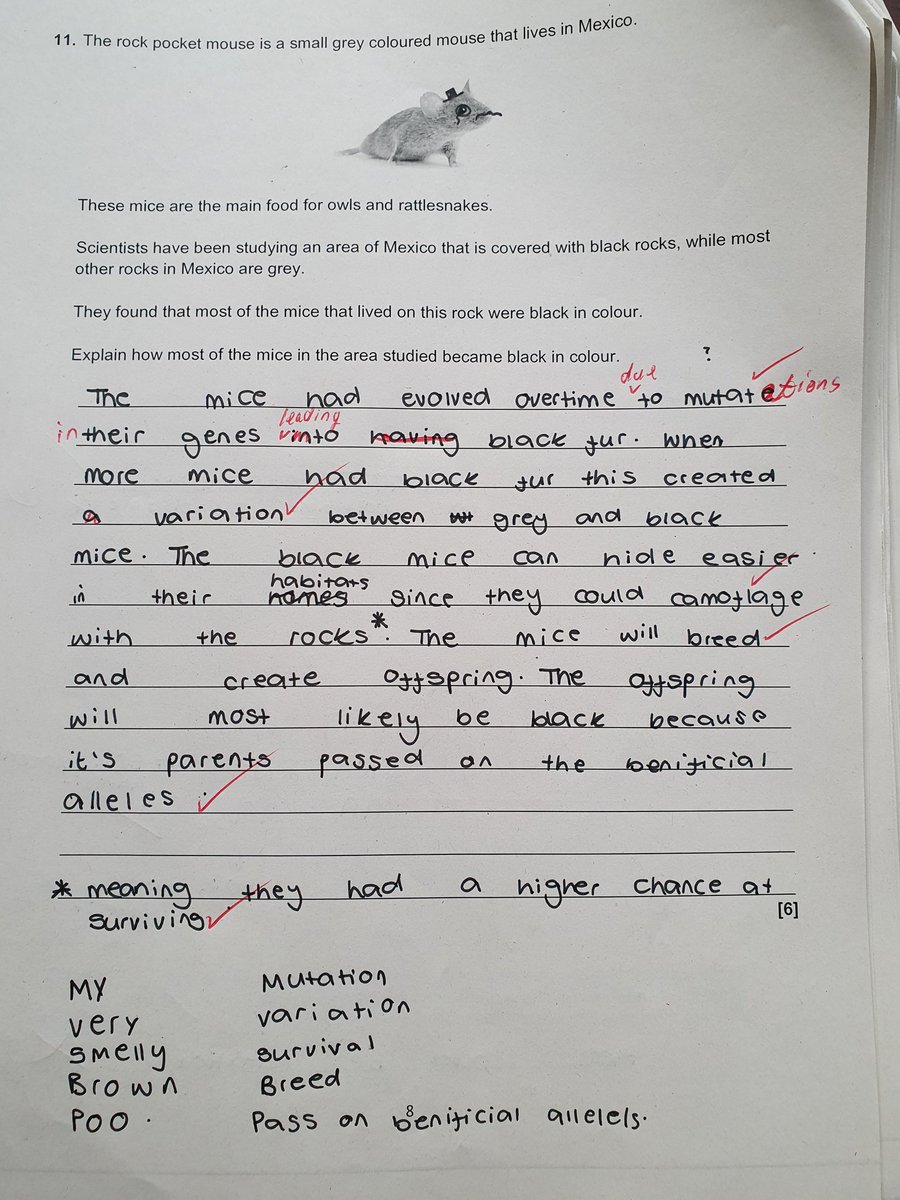 11. The rock pocket mouse is a small grey coloured mouse that lives in Mexico.
These mice are the main food for owls and rattlesnakes.
Scientists have been studying an area of Mexico that is covered with black rocks, while most
other rocks in Mexico are grey.
They found that most of the mice that lived on this rock were black in colour.
Explain how most of the mice in the area studied became black in colour. ?
due
The mice had evolved overtime to mutations
leading
in their genes into having black fur. When
more mice had black fur this created
a variation between grey and black
mice. The black mice can hide easier
habitats
in their homes since they could camoflage
with the rocks*. The mice will breed
and create offspring. The offspring
will most likely be black because
it's parents passed on the benificial
alleles.
* meaning they had a higher chance at
surviving
[6]
My Mutation
very variation
smelly survival
Brown Breed
Poo. Pass on benificial allelels.
8